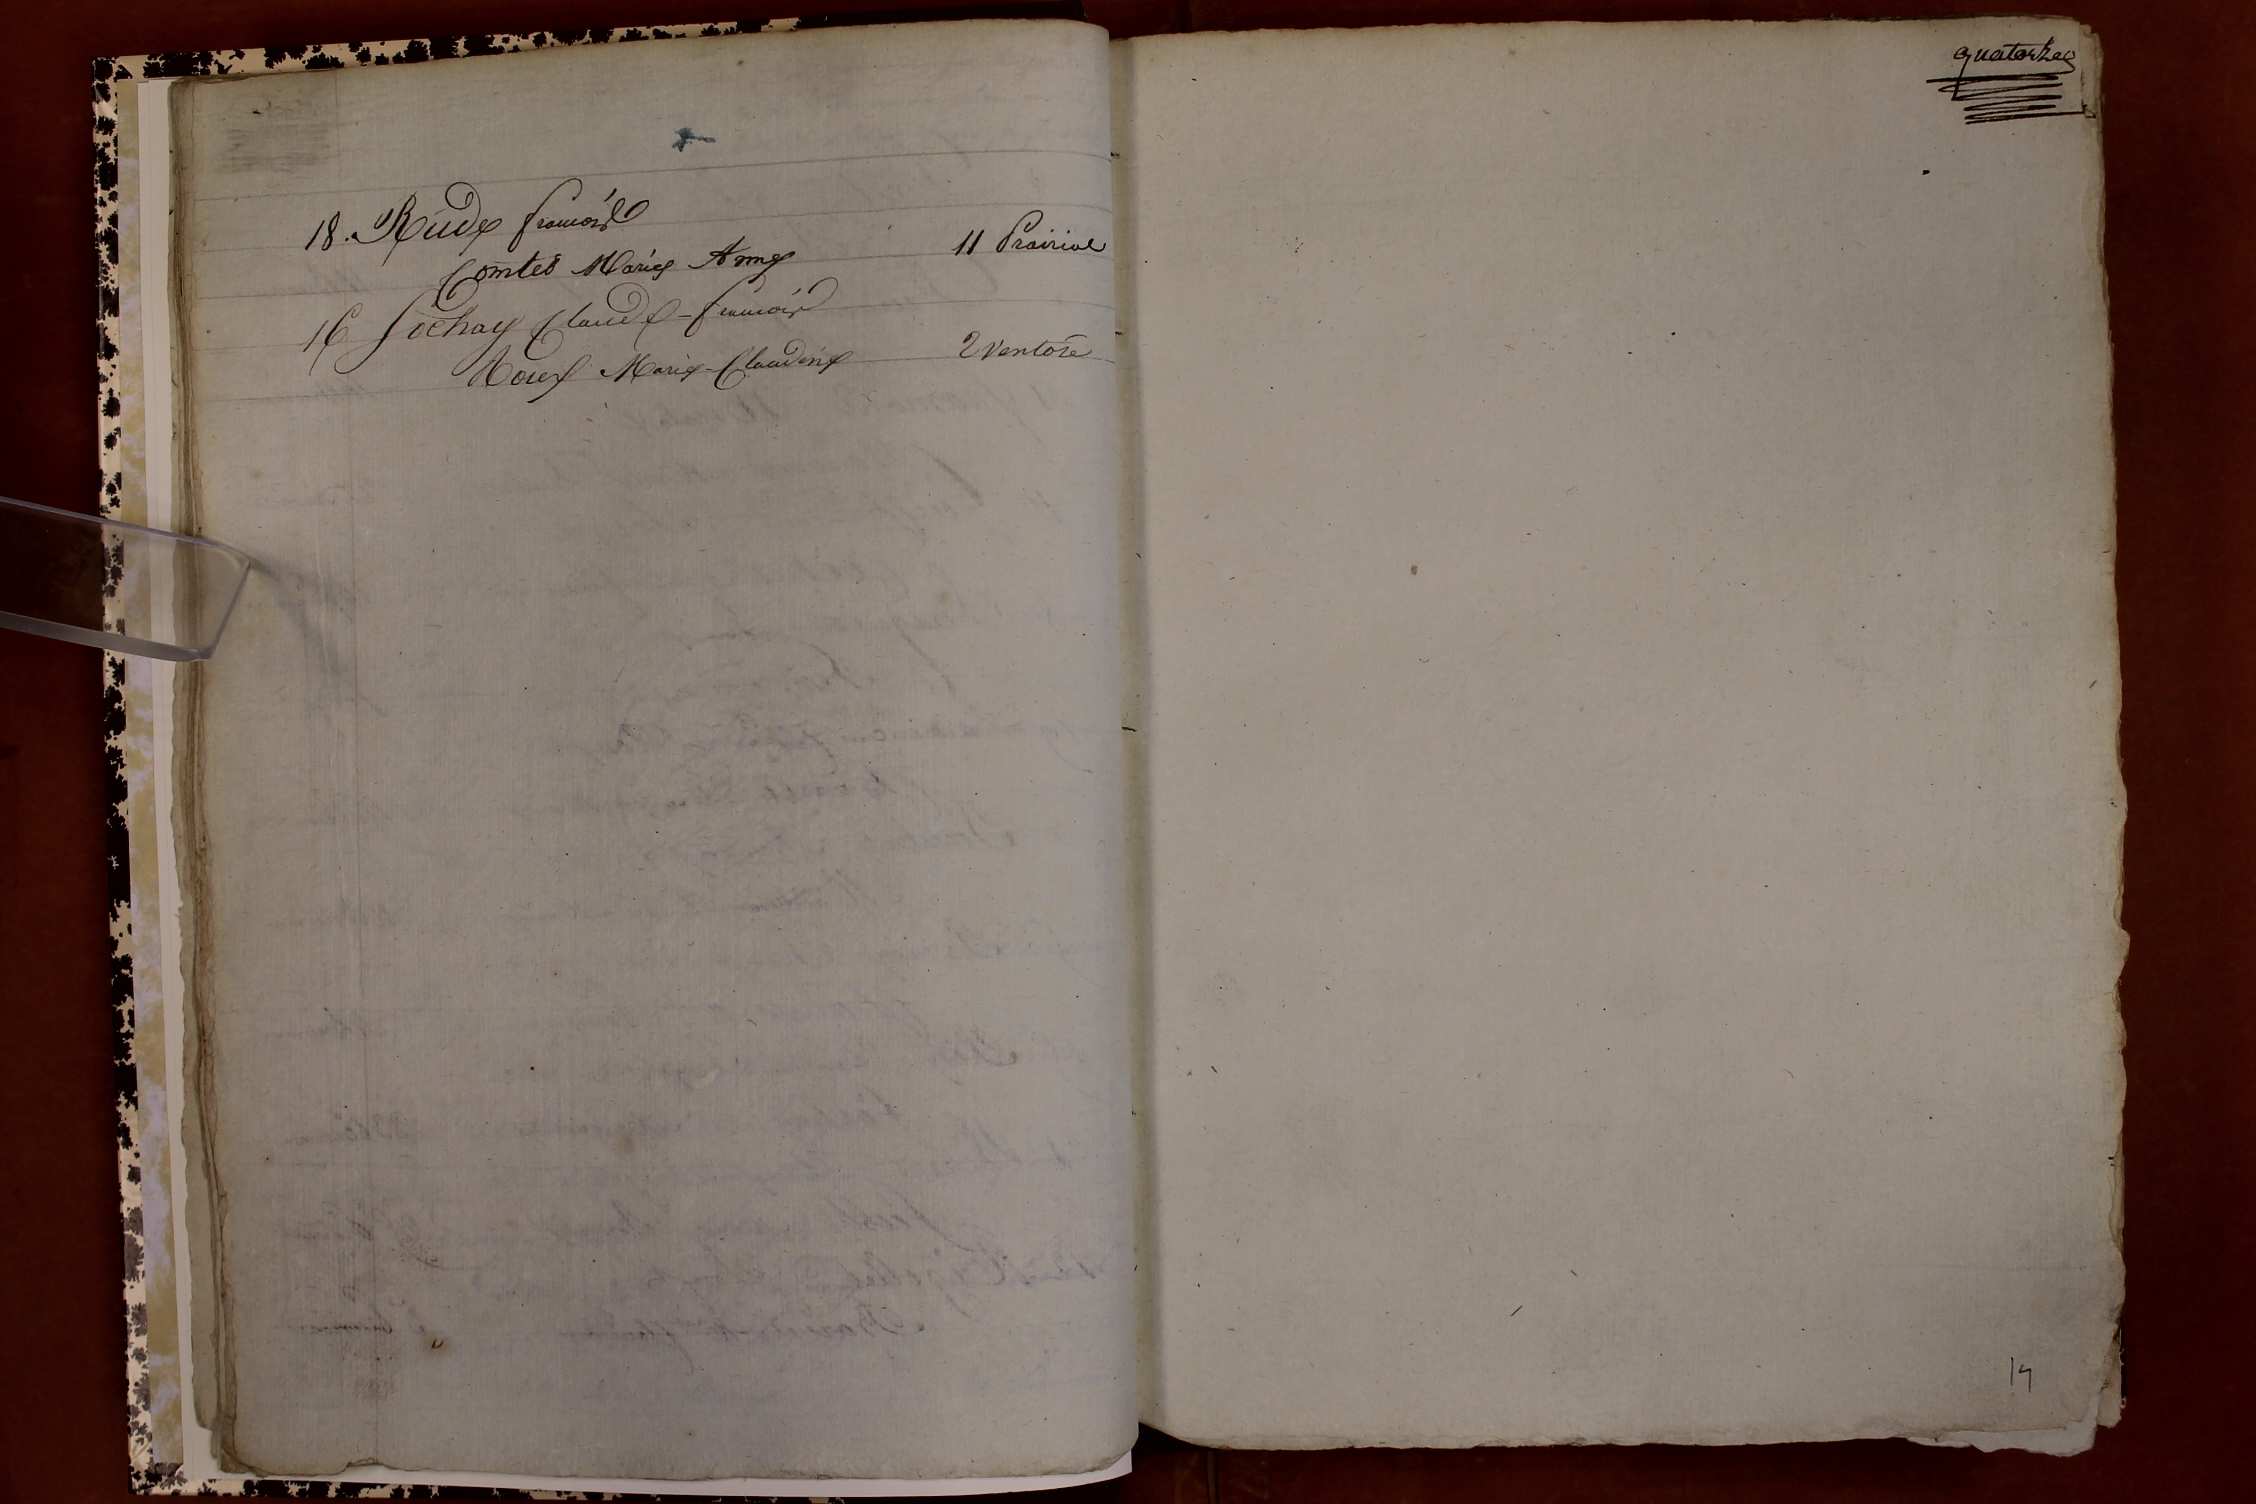 18. Rude francois
Comtes Marie Anne 11 Prairial
16 Sochay Claude-francois
Marie-Claudine 2 Ventose
quatorze
14